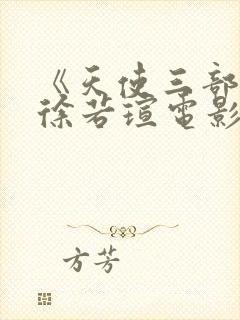 《天使三部
徐若瑄电影
方芳